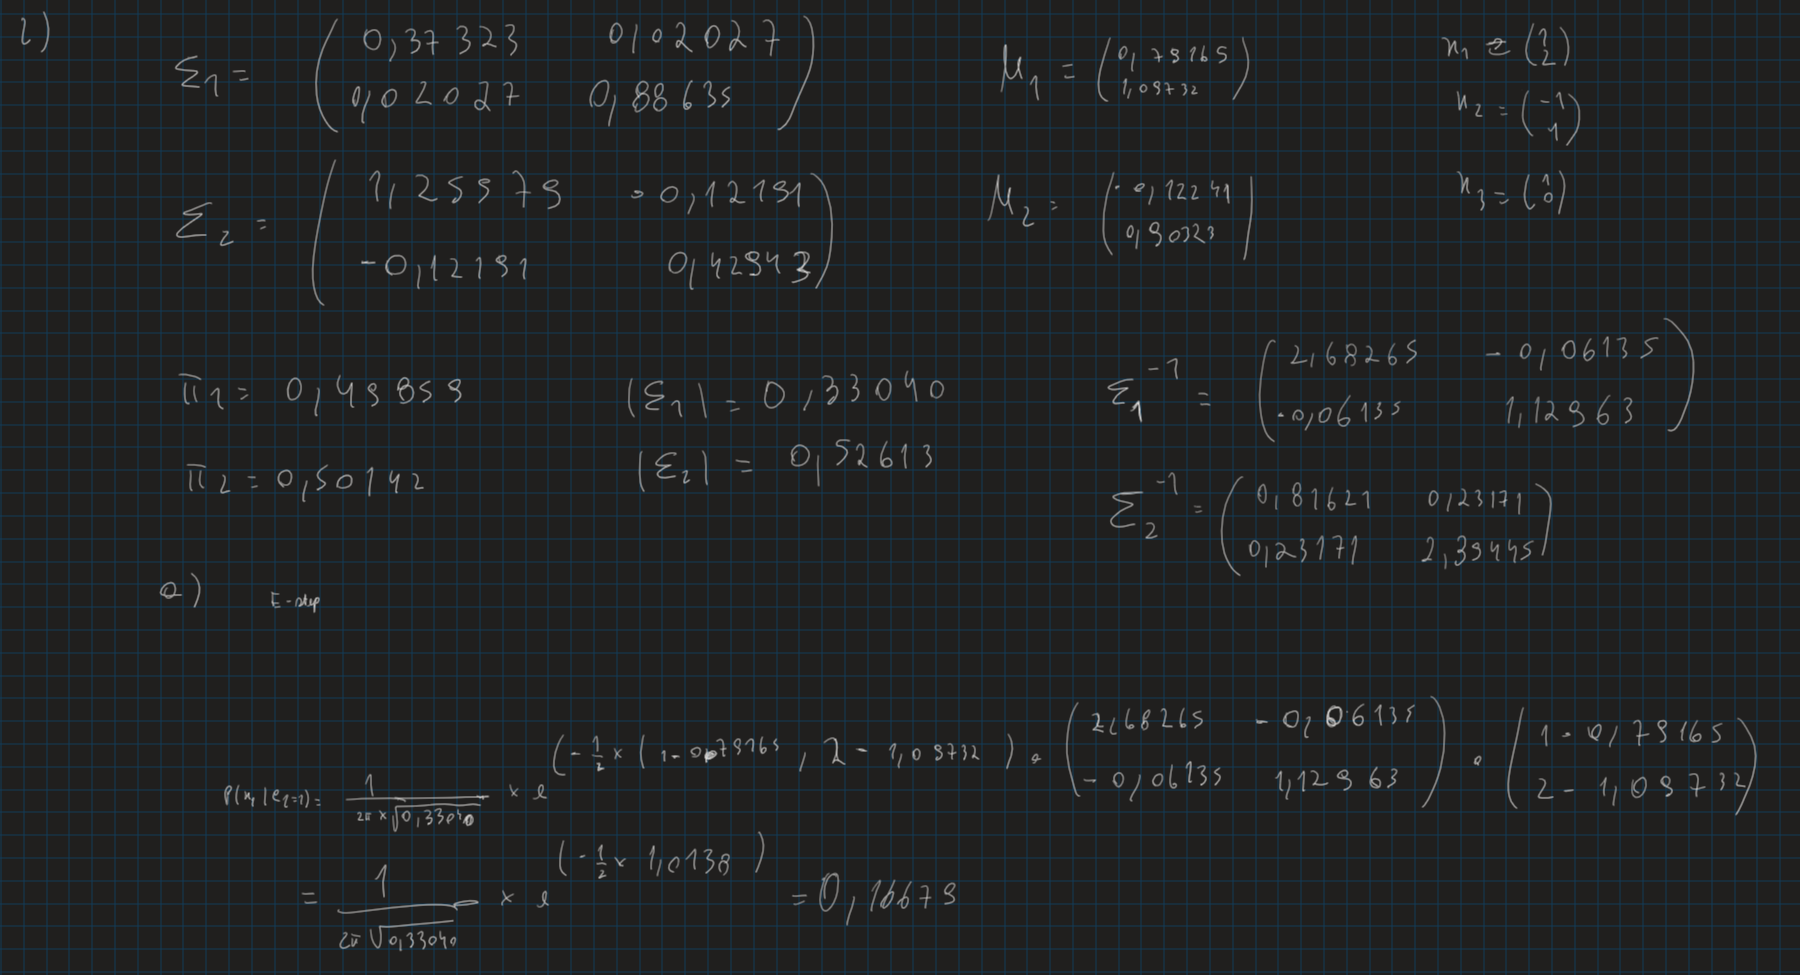 2)
Σ1 = ( 0,37323 0,02027 0,02027 0,88635 )
μ1 = ( 0,79165 1,09732 )
x1 = ( 1 2 )
x2 = ( -1 1 )
x3 = ( 1 0 )
Σ2 = ( 1,25979 -0,12191 -0,12191 0,42943 )
μ2 = ( -0,12241 0,90323 )
π1 = 0,49859
|Σ1| = 0,33040
Σ1^-1 = ( 2,68265 -0,06135 -0,06135 1,12963 )
π2 = 0,50142
|Σ2| = 0,52613
Σ2^-1 = ( 0,81621 0,23171 0,23171 2,39445 )
a) E-step
P(x1|c1=1) = 1 / 2π × √0,33040 × e ( -1/2 × ( 1 - 0,79165 , 2 - 1,09732 ) · ( 2,68265 -0,06135 -0,06135 1,12963 ) · ( 1 - 0,79165 2 - 1,09732 )
= 1 / 2π √0,33040 × e ( -1/2 × 1,0138 ) = 0,16679